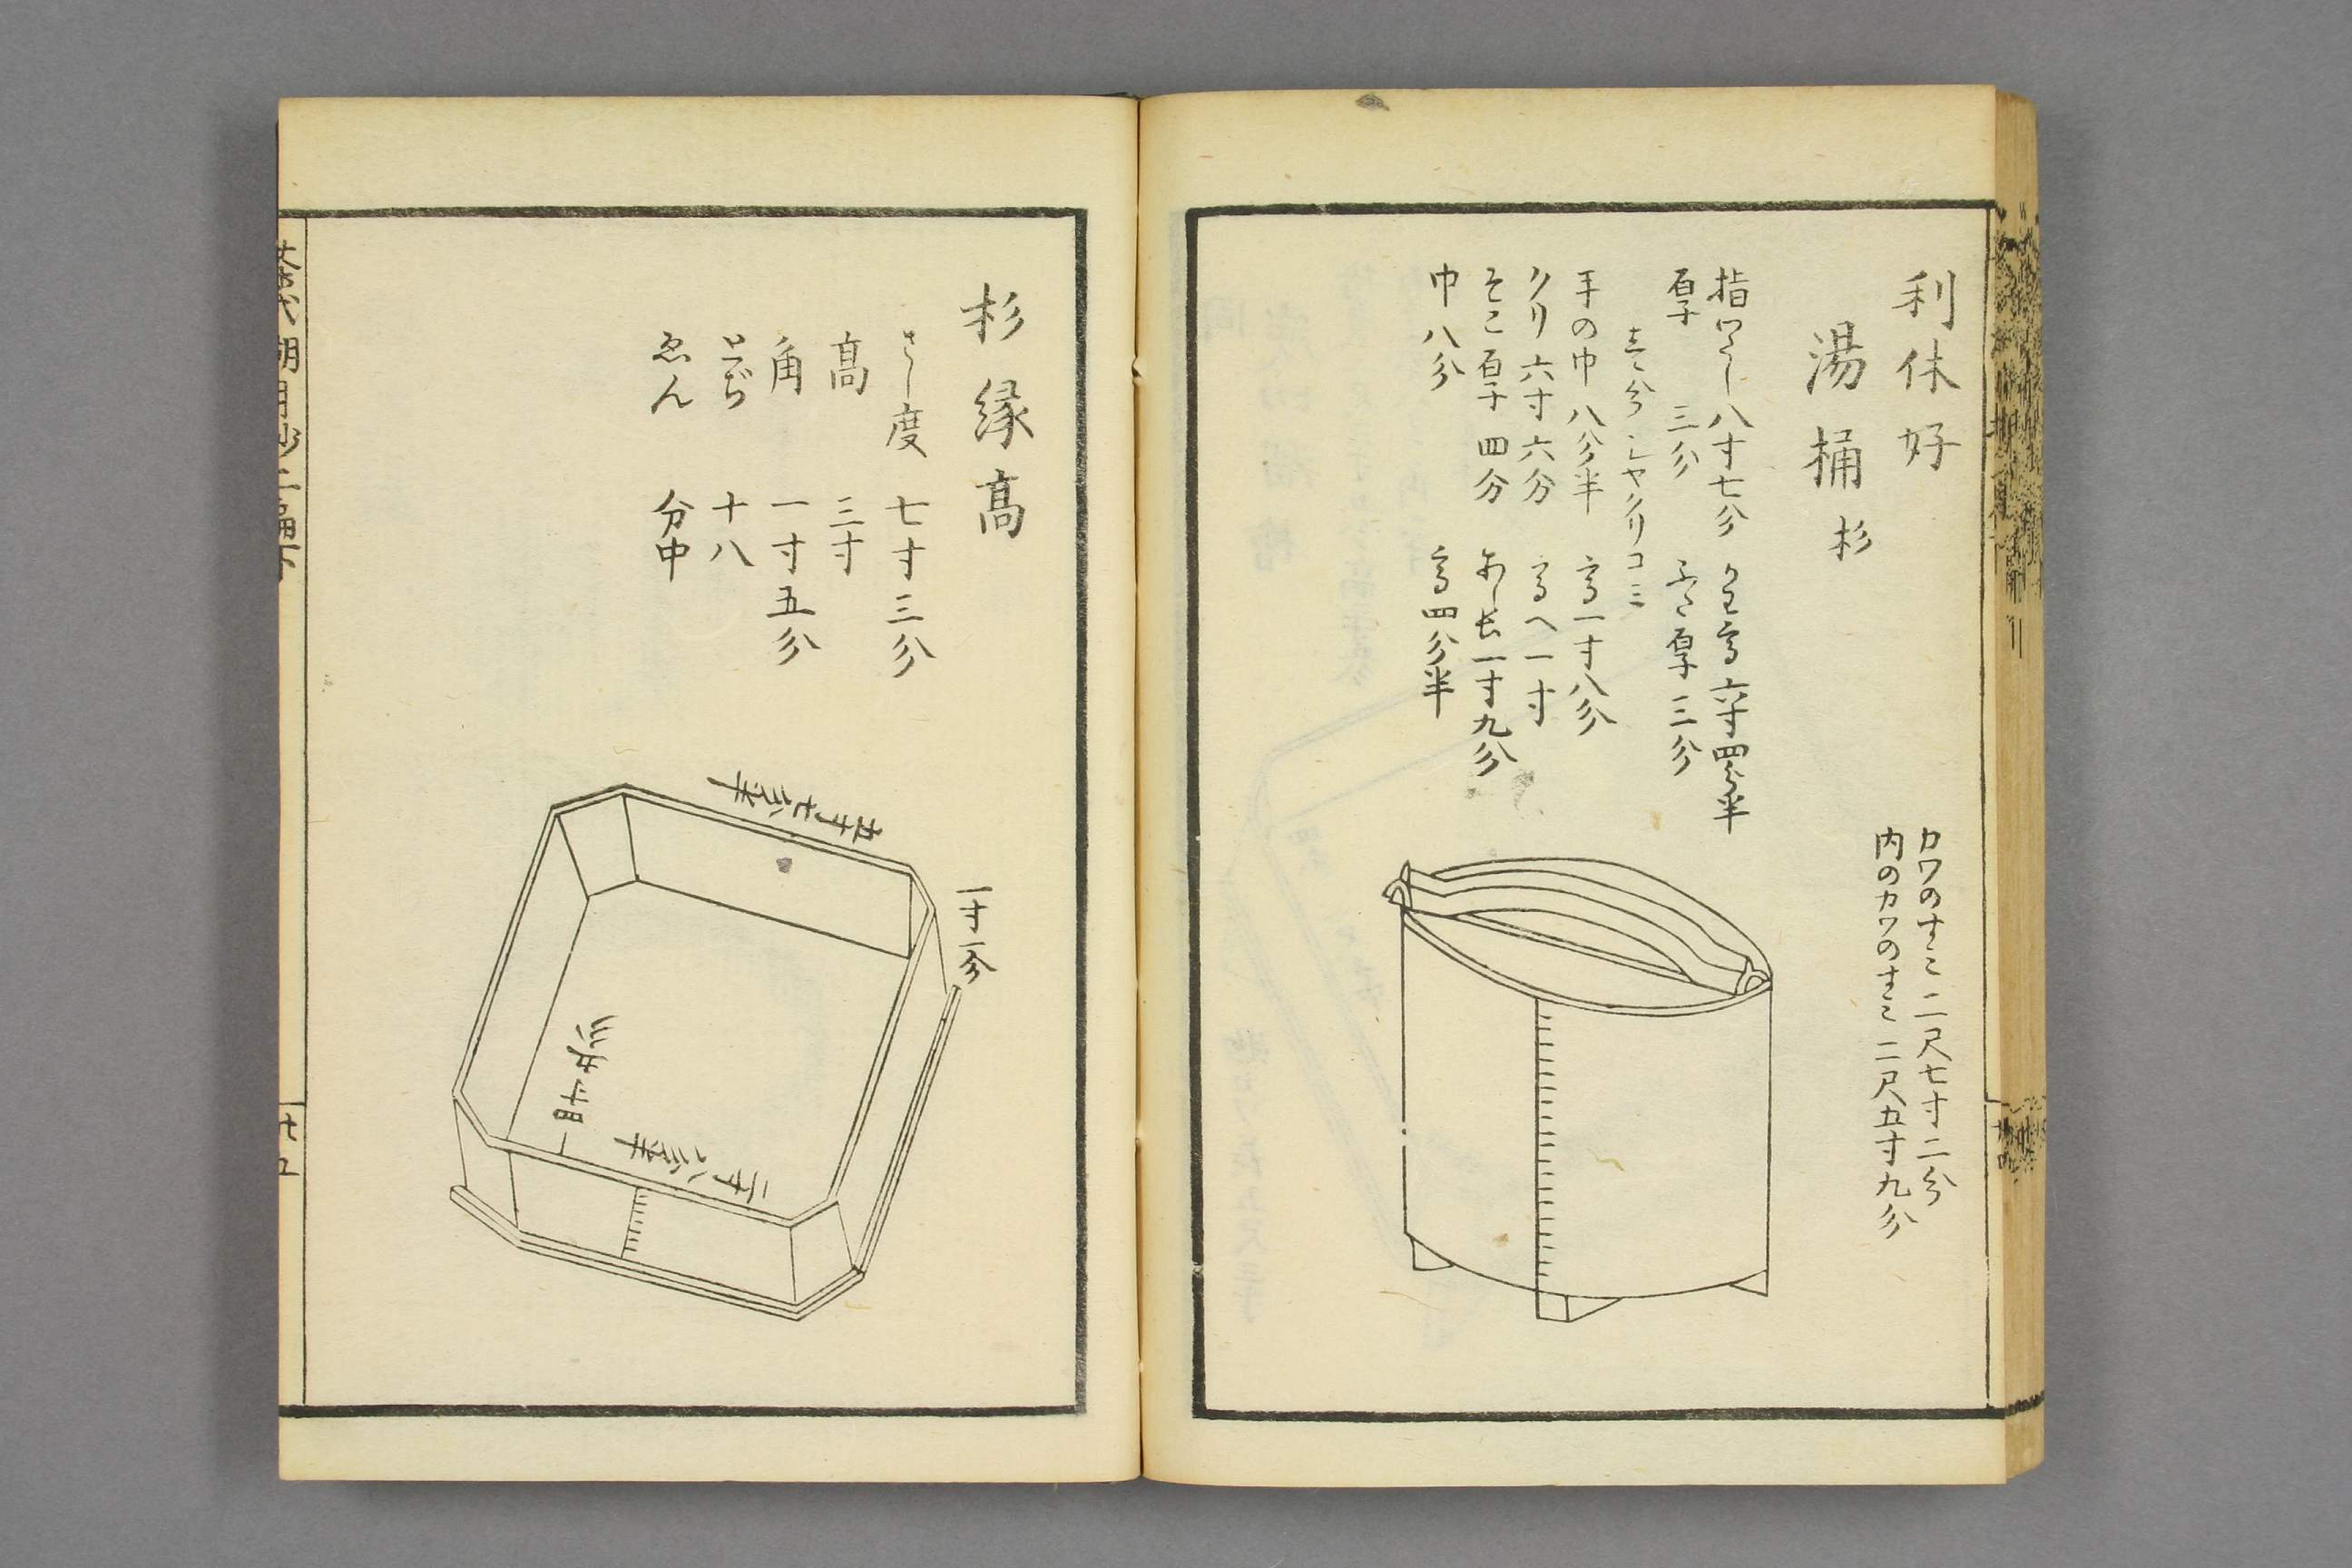 利休好
湯桶 杉
カワのすミ二尺七寸二分
内のカワのすミ二尺五寸九分
指わたし八寸七分
惣高六寸四分半
厚 三分
ふた厚三分
壱分シヤクリコミ
手の巾八分半
高一寸八分
クリ六寸六分
高へ一寸
そこ厚四分
あし長一寸九分
巾八分
高四分半
杉縁高
さし度 七寸三分
高 三寸
角 一寸五分
とぢ 十八
ゑん 分中
五寸七分半
一寸一分
一寸四
二寸八分半